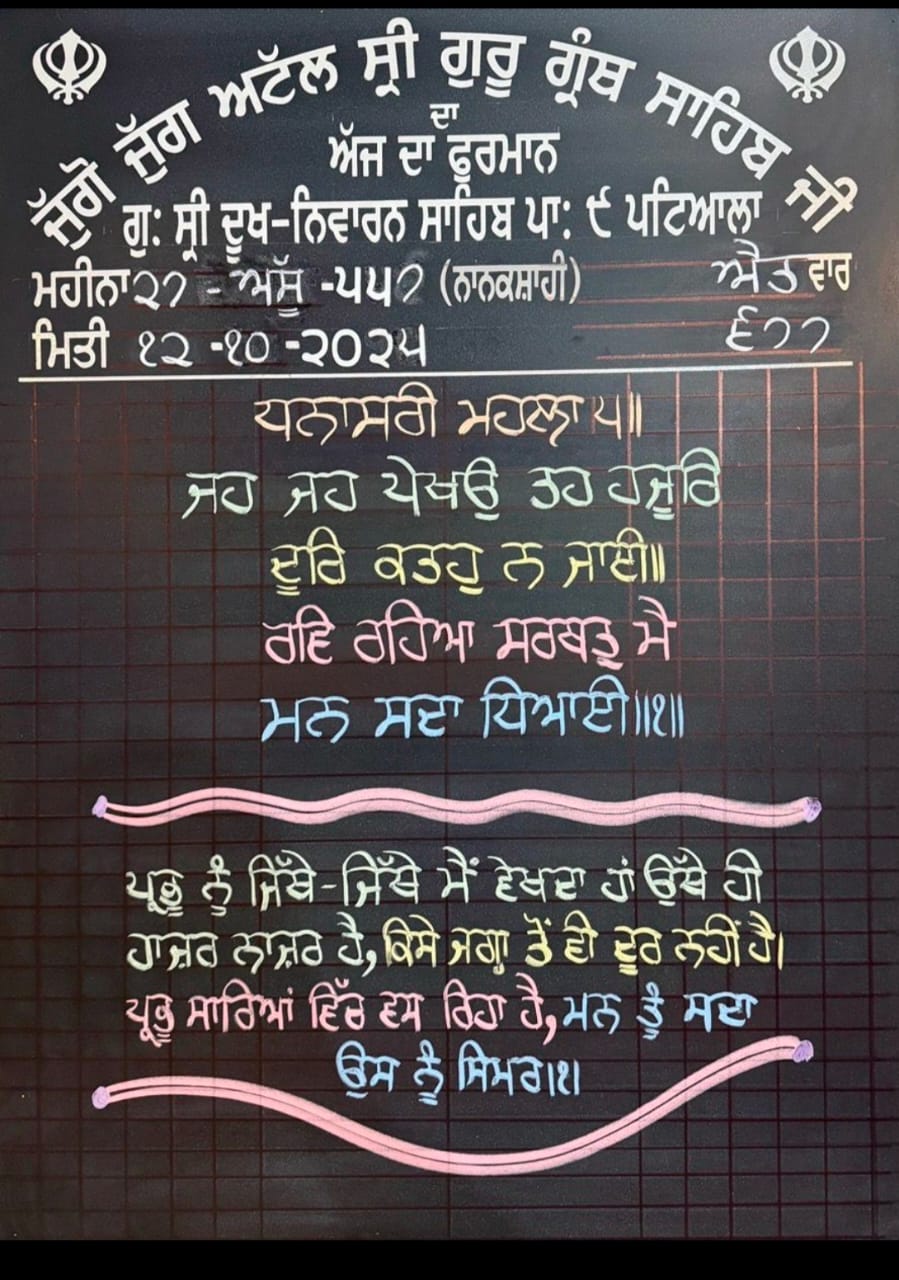 ਜੁੱਗੋ ਜੁੱਗ ਅਟੱਲ ਸ੍ਰੀ ਗੁਰੂ ਗ੍ਰੰਥ ਸਾਹਿਬ ਜੀ
ਦਾ
ਅੱਜ ਦਾ ਫੂਰਮਾਨ
ਗੁ: ਸ੍ਰੀ ਦੂਖ-ਨਿਵਾਰਨ ਸਾਹਿਬ ਪਾ: ੯ ਪਟਿਆਲਾ
ਮਹੀਨਾ ੨੭ - ਅੱਸੂ -੫੫੭ (ਨਾਨਕਸ਼ਾਹੀ) ਐਤਵਾਰ
ਮਿਤੀ ੧੨ -੧੦ -੨੦੨੫ ੬੭੭
ਧਨਾਸਰੀ ਮਹਲਾ ੫॥
ਜਹ ਜਹ ਪੇਖਉ ਤਹ ਹਜੂਰਿ
ਦੂਰਿ ਕਤਹੁ ਨ ਜਾਈ॥
ਰਵਿ ਰਹਿਆ ਸਰਬਤ੍ਰ ਮੈ
ਮਨ ਸਦਾ ਧਿਆਈ॥੧॥
ਪ੍ਰਭੂ ਨੂੰ ਜਿੱਥੇ-ਜਿੱਥੇ ਮੈਂ ਵੇਖਦਾ ਹਾਂ ਉੱਥੇ ਹੀ
ਹਾਜ਼ਰ ਨਾਜ਼ਰ ਹੈ, ਕਿਸੇ ਜਗ੍ਹਾ ਤੋਂ ਵੀ ਦੂਰ ਨਹੀਂ ਹੈ।
ਪ੍ਰਭੂ ਸਾਰਿਆਂ ਵਿੱਚ ਵਸ ਰਿਹਾ ਹੈ, ਮਨ ਤੂੰ ਸਦਾ
ਉਸ ਨੂੰ ਸਿਮਰ।੧।